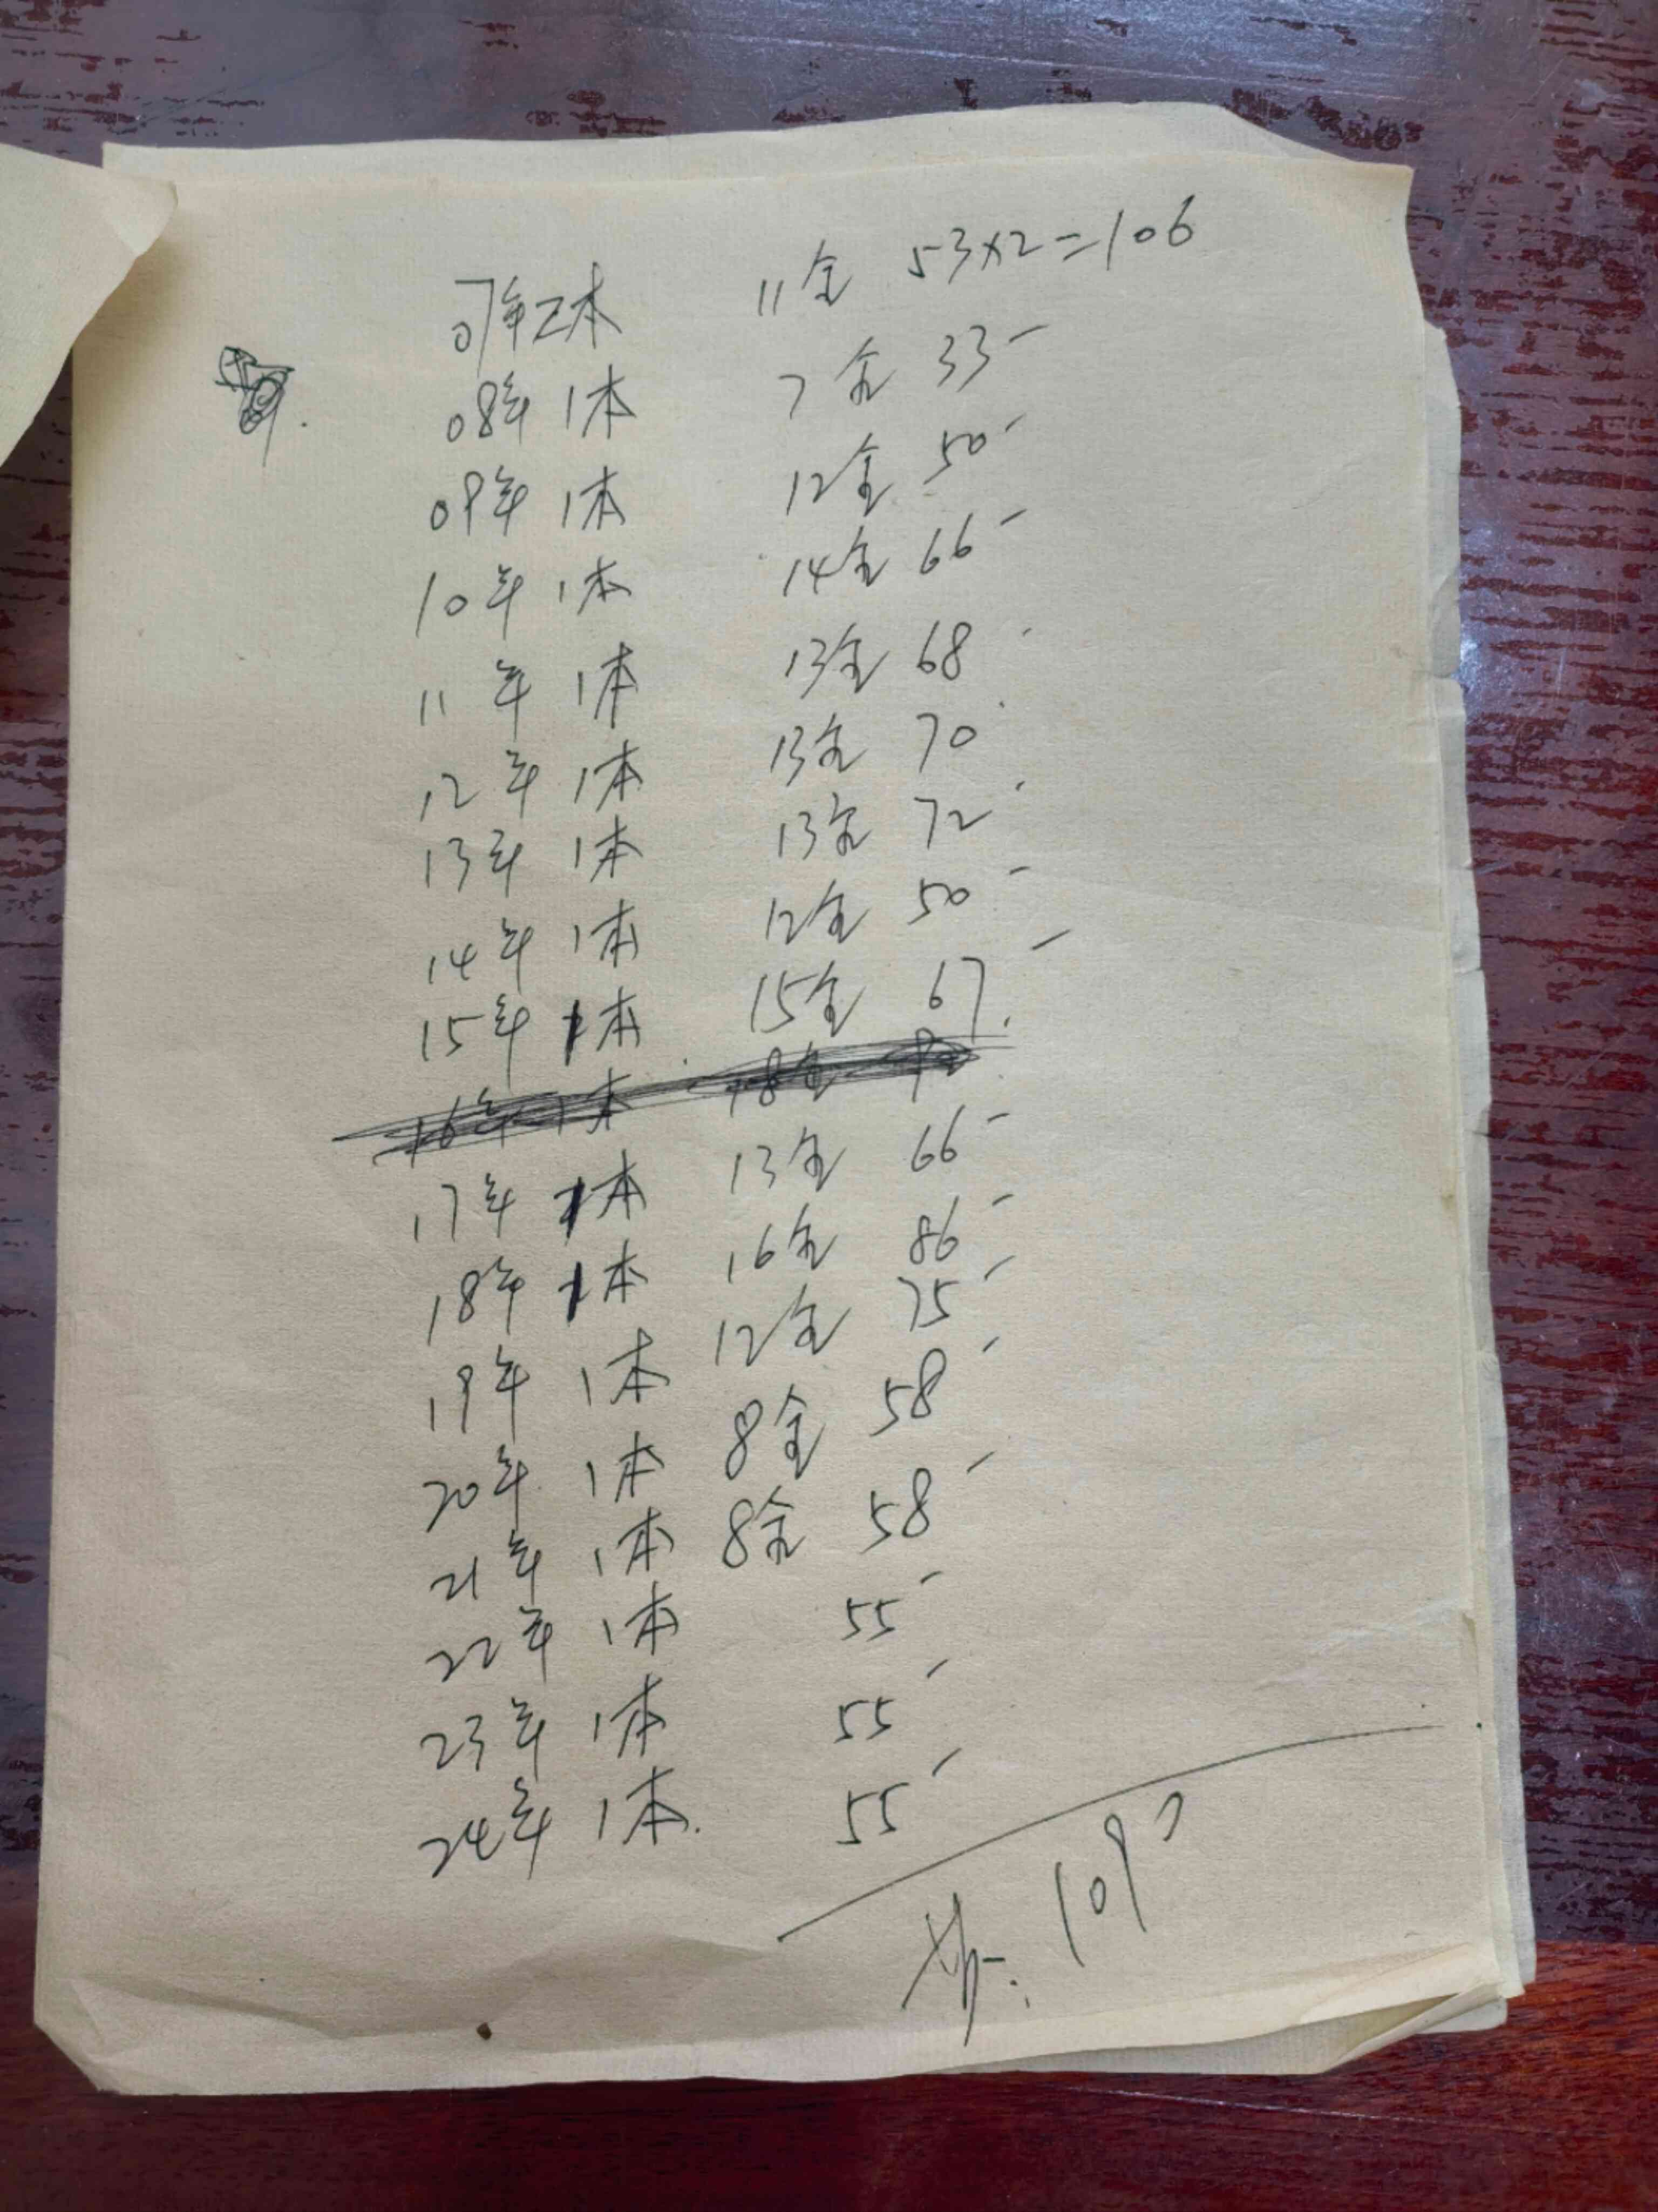 07年2本 11全 53×2=106
08年 1本 7全 33-
09年 1本 12全 50-
10年 1本 14全 66-
11年 1本 13全 68-
12年 1本 13全 70
13年 1本 13全 72-
14年 1本 12全 50-
15年 1本 15全 67-
16年 1本 18全
17年 1本 13全 66-
18年 1本 16全 86-
19年 1本 12全 75-
20年 1本 8全 58-
21年 1本 8全 58-
22年 1本 55-
23年 1本 55-
24年 1本. 55-
共: 1092